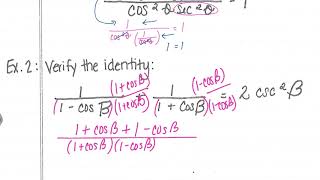 cos²θ sec²θ
1/(cos²θ (1/cos²θ)) = 1
1 = 1
Ex. 2: Verify the identity:
(1+cosβ)/(1+cosβ) 1/(1 - cos β) 1/(1 + cos β) (1-cosβ)/(1-cosβ) = 2 csc²β
(1 + cosβ + 1 - cosβ)/((1+cosβ)(1-cosβ))